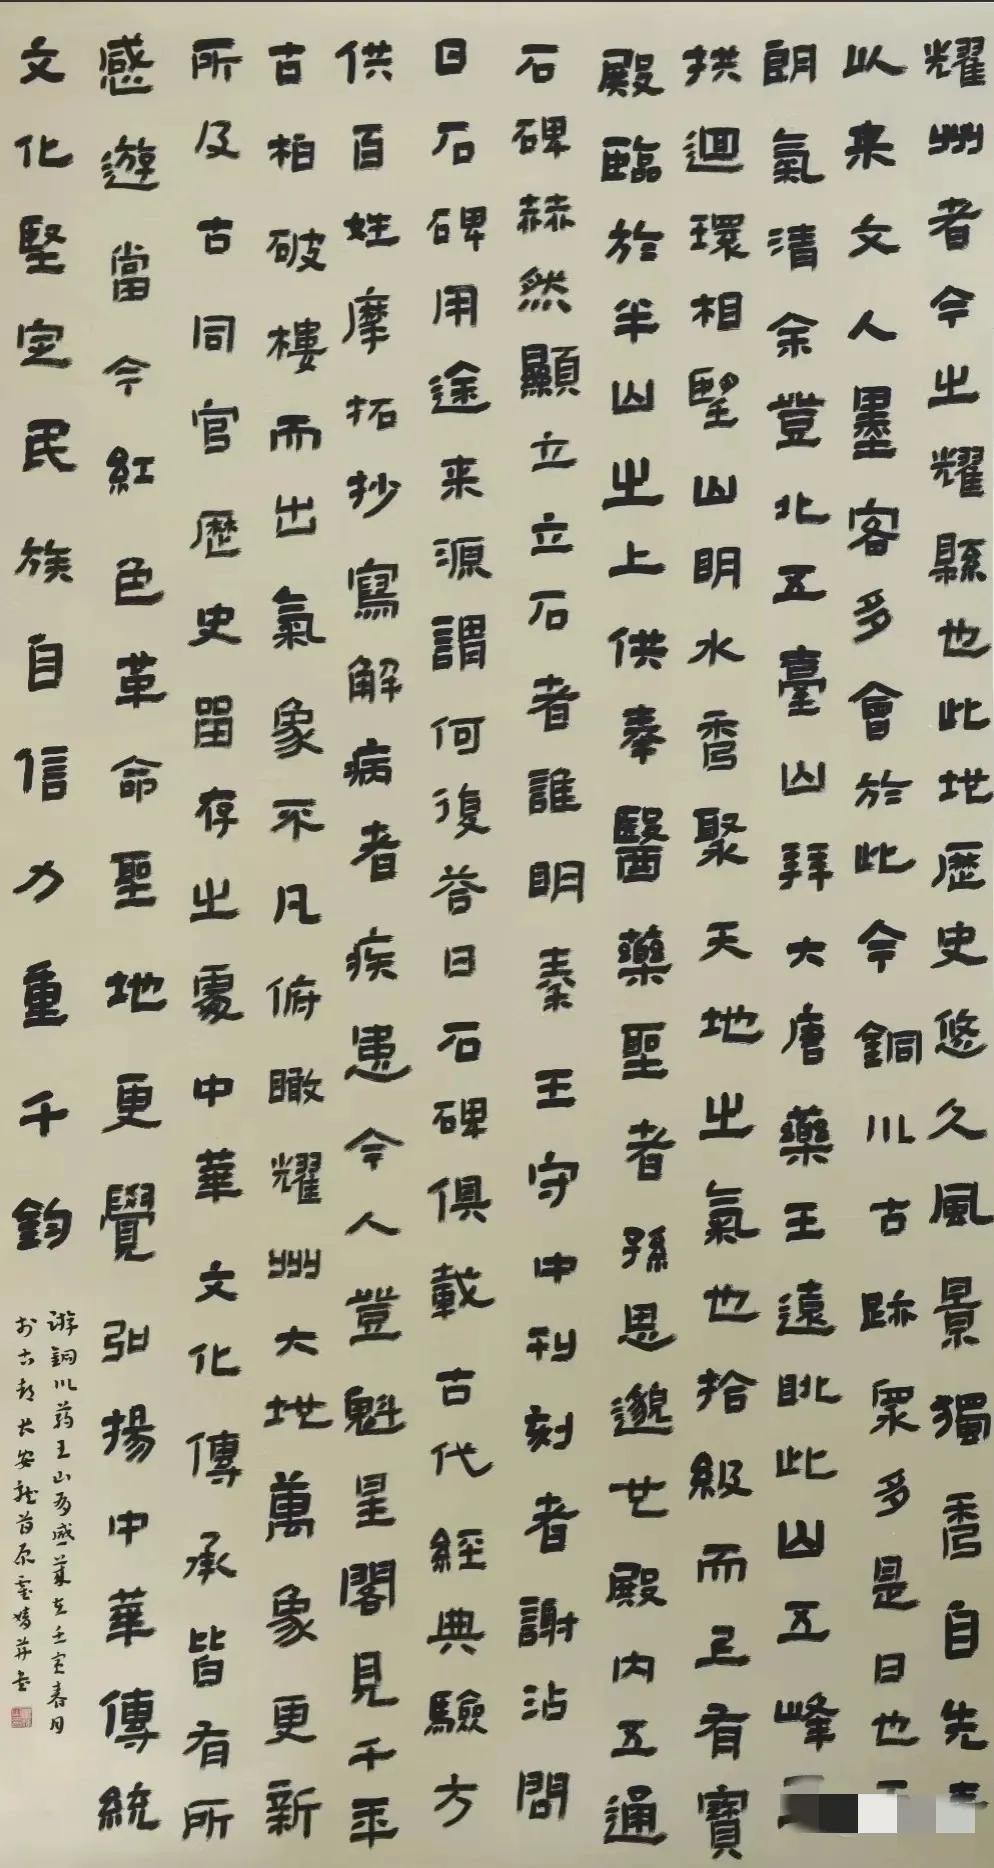 耀州者今之耀縣也此地歷史悠久風景獨秀自先秦
以来文人墨客多會於此今銅川古跡衆多是日也天
朗氣清余登北五臺山拜大唐藥王遠眺此山五峰
拱迴環相望山明水秀聚天地之氣也拾級而上有寶
殿臨於半山之上供奉醫藥聖者孫思邈也殿内五通
石碑赫然顯立立石者誰明秦王守中刊刻者謝沾問
曰石碑用途来源謂何復答曰石碑俱載古代經典驗方
供百姓摩拓抄寫解病者疾患今人登魁星閣見千年
古柏破樓而出氣象不凡俯瞰耀州大地萬象更新
所及古同官歷史留存之處中華文化傳承皆有所
感遊當今紅色革命聖地更覺弘揚中華傳統
文化堅定民族自信力重千鈞
游銅川药王山有感并书壬寅春月
於古都长安龙首原